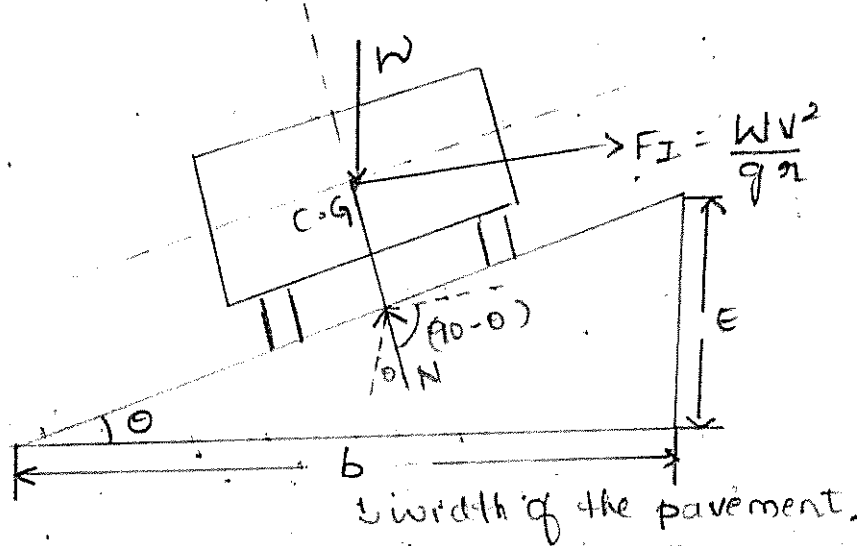 W
F_I = WV²/gr
C.G
(90-θ)
E
θ N
θ
b
width of the pavement.